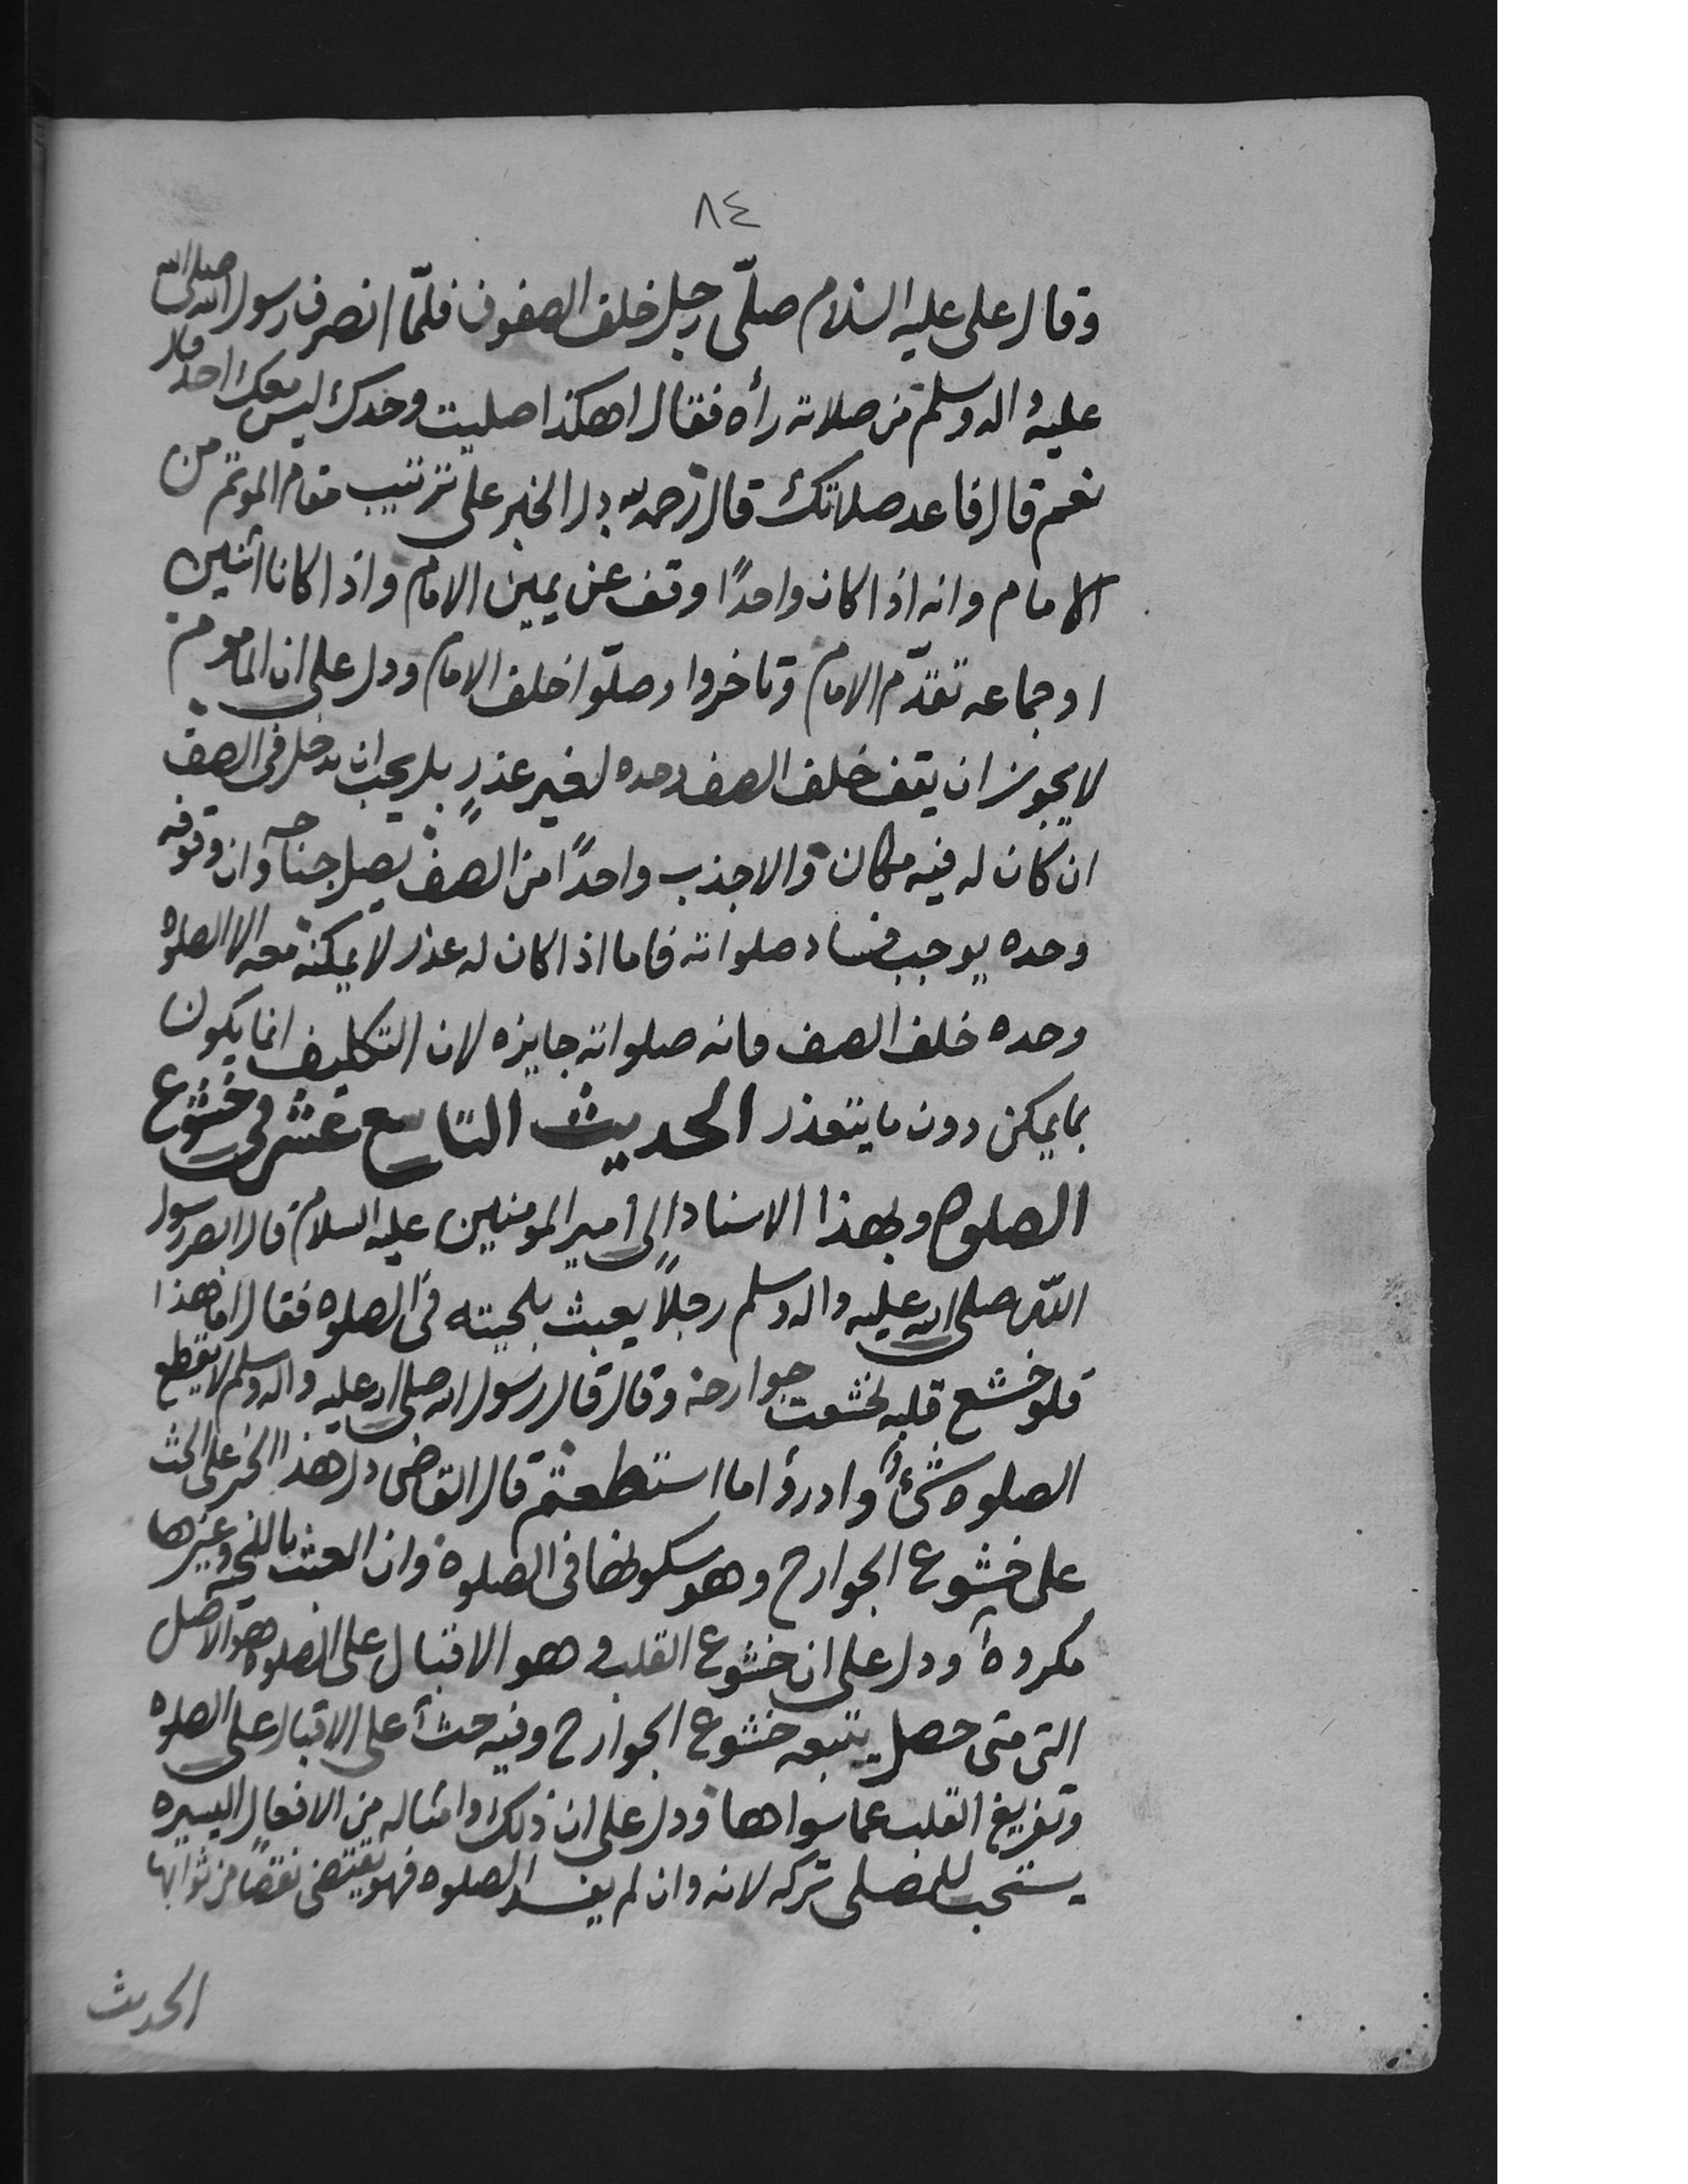 ٨٤
وقال على عليه السلام صلّى رجل خلف الصفوف فلمّا انصرف رسول الله صلى الله
عليه واله وسلم من صلاته رأه فقال اهكذا صليت وحدك ليس معك احد قال
نعم قال فاعد صلاتك قال رحمه الله دل الخبر على ترتيب مقام الموتم من
الامام وانه اذا كان واحدًا وقف عن يمين الامام واذا كانا اثنين
اوجماعه تقدّم الامام وتاخروا وصلّوا خلف الامام ودل على ان الماموم
لايجوز ان يقف خلف الصف وحده لغير عذرٍ بل يجب ان يدخل فى الصف
ان كان له فيه مكان والا جذب واحدًا من الصف يصل جناحه وان وقوفه
وحده يوجب فساد صلواته فاما اذا كان له عذر لا يمكنه معه الا الصلوه
وحده خلف الصف فانه صلواته جايزه لان التكليف انما يكون
بمايمكن دون مايتعذر الحديث التاسع عشر فى خشوع
الصلوه وبهذا الاسناد الى أمير المومنين عليه السلام قال ابصر رسول
اللّه صلى الله عليه واله وسلم رجلاً يعبث بلحيته فى الصلوه فقال اما هذا
فلو خشع قلبه لخشعت جوارحه وقال قال رسول الله صلى الله عليه واله وسلم لا يقطع
الصلوه شئٌ وادرؤا ما استطعتم قال القاضى دل هذا الخبر على الحث
على خشوع الجوارح وهو سكونها فى الصلوة وان العبث باللحيه وغيرها
مكروه ودل على ان خشوع القلب وهو الاقبال على الصلوه هو الاصل
التى متى حصل يتبعه خشوع الجوارح وفيه حث على الاقبال على الصلوه
وتفريغ القلب عما سواها ودل على ان ذلك وامثاله من الافعال اليسيره
يستحب للمصلى تركه لانه وان لم يفسد الصلوه فهو يقتضى نقصًا من ثوابها
الحديث